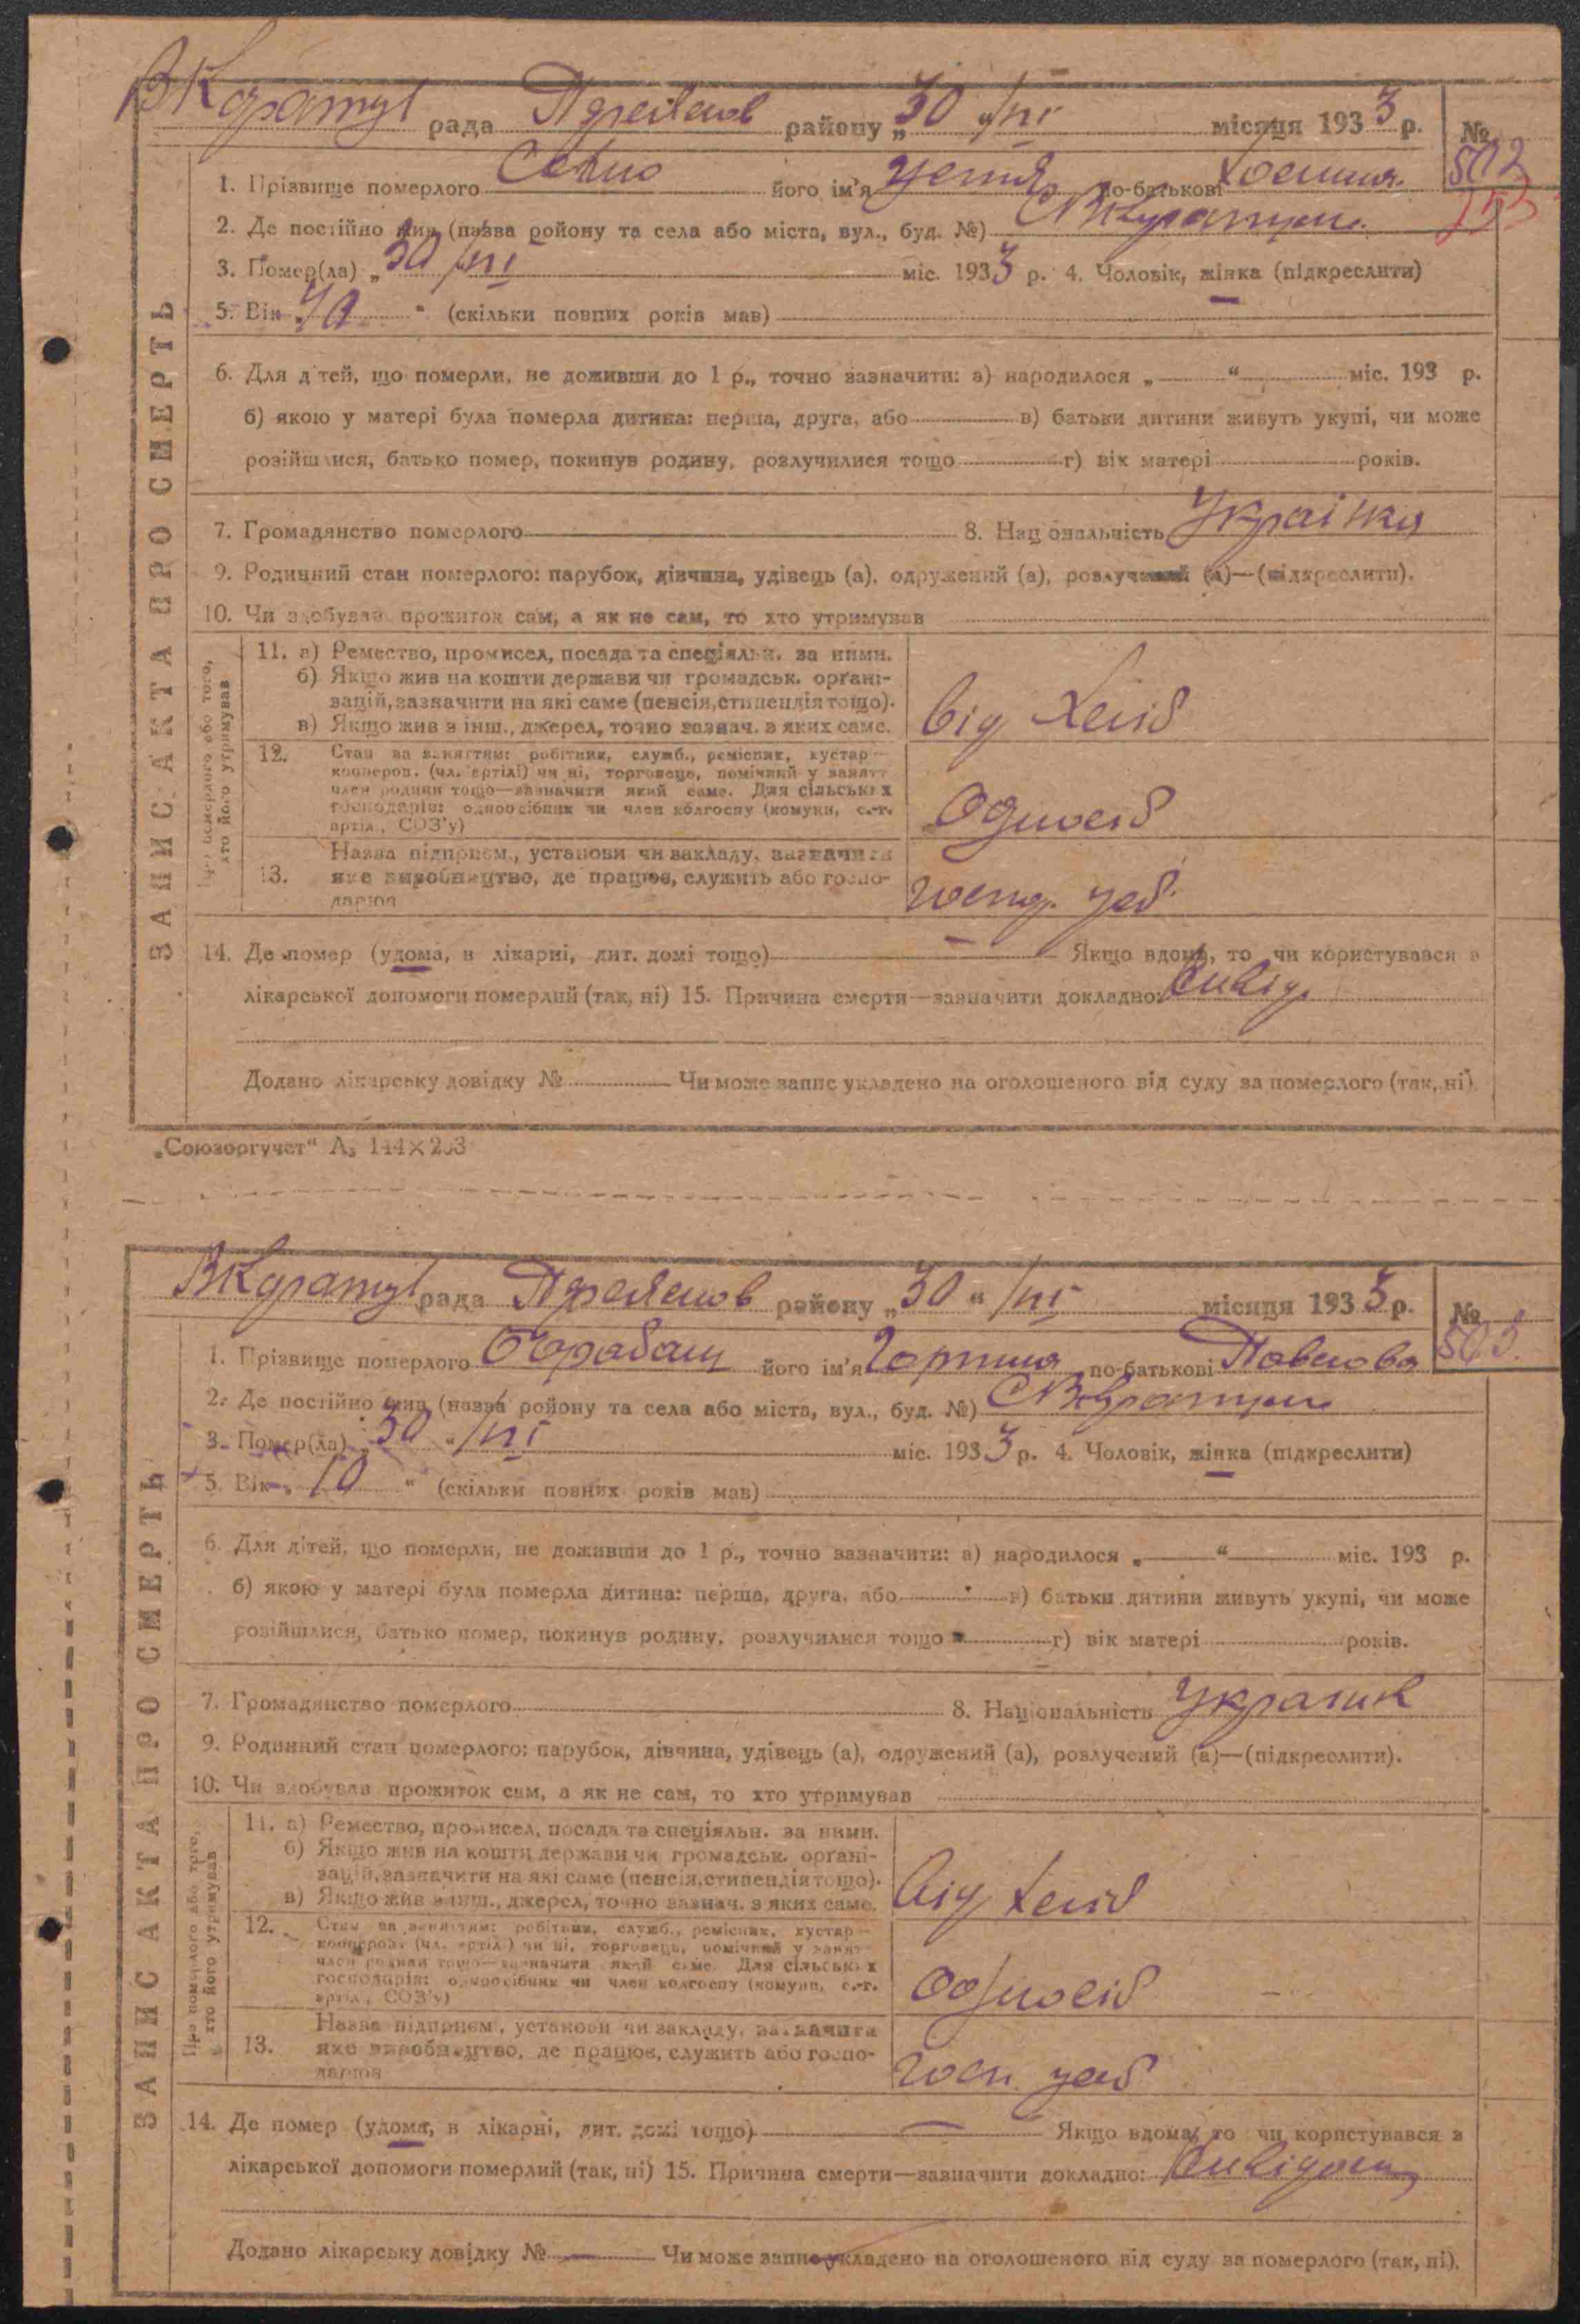 рада район у „30 “ /VI місяця 1933 р. №
1. Прізвище померлого його ім'я по-батькові 502
2. Де постійно жив (назва ройону та села або міста, вул., буд. №)
3. Помер(ла) „30 /VI міс. 1933 р. 4. Чоловік, жінка (підкреслити)
5. Вік “ (скільки повних років мав)
6. Для дітей, що померли, не доживши до 1 р., точно зазначити: а) народилося „ “ міс. 193 р.
б) якою у матері була померла дитина: перша, друга, або в) батьки дитини живуть укупі, чи може
розійшлися, батько помер, покинув родину, розлучилися тощо г) вік матері років.
7. Громадянство померлого 8. Національність Українка
9. Родинний стан померлого: парубок, дівчина, удівець (а), одружений (а), розлучений (а)—(підкреслити).
10. Чи здобував прожиток сам, а як не сам, то хто утримував
Про померлого або того,
хто його утримував
11. а) Ремество, промисел, посада та спеціяльн. за ними.
б) Якщо жив на кошти держави чи громадськ. орґані-
зацій, зазначити на які саме (пенсія, стипендія тощо).
в) Якщо жив з інш., джерел, точно зазнач. з яких саме.
від
12. Стан за заняттям: робітник, служб., ремісник, кустар—
кооперов. (чл. артілі) чи ні, торговець, помічний у занятт
член родини тощо—зазначити який саме. Для сільських
господарів: одноосібник чи член колгоспу (комуни, с.-г.
артіл., СОЗ'у)
Одноосіб
Назва підприєм., установи чи закладу, зазначити
13. яке виробництво, де працює, служить або госпо-
дарює
14. Де помер (удома, в лікарні, дит. домі тощо) — Якщо вдома, то чи користувався з
лікарської допомоги померлий (так, ні) 15. Причина смерти—зазначити докладно:
Додано лікарську довідку № Чи може запис укладено на оголошеного від суду за померлого (так, ні).
ЗАПИС АКТА ПРО СМЕРТЬ
„Союзоргучет“ А₅ 144×203
рада району „30 “ /VI місяця 1933 р. №
1. Прізвище померлого його ім'я по-батькові Павлова 503.
2. Де постійно жив (назва ройону та села або міста, вул., буд. №)
3. Помер(ла) „30 “ /VI міс. 1933 р. 4. Чоловік, жінка (підкреслити)
5. Вік „ 10 “ (скільки повних років мав)
6. Для дітей, що померли, не доживши до 1 р., точно зазначити: а) народилося „ “ міс. 193 р.
б) якою у матері була померла дитина: перша, друга, або в) батьки дитини живуть укупі, чи може
розійшлися, батько помер, покинув родину, розлучилися тощо г) вік матері років.
7. Громадянство померлого 8. Національність
9. Родинний стан померлого: парубок, дівчина, удівець (а), одружений (а), розлучений (а)—(підкреслити).
10. Чи здобував прожиток сам, а як не сам, то хто утримував
Про померлого або того,
хто його утримував
11. а) Ремество, промисел, посада та спеціяльн. за ними.
б) Якщо жив на кошти держави чи громадськ. орґані-
зацій, зазначити на які саме (пенсія, стипендія тощо).
в) Якщо жив з інш., джерел, точно зазнач. з яких саме.
від
12. Стан за заняттям: робітник, служб., ремісник, кустар—
кооперов. (чл. артіл.) чи ні, торговець, помічний у занят—
член родини тощо—зазначити який саме. Для сільських
господарів: одноосібник чи член колгоспу (комуни, с.-г.
артіл., СОЗ'у)
Одноосіб
Назва підприєм., установи чи закладу, зазначити
13. яке виробництво, де працює, служить або госпо-
дарює
14. Де помер (удома, в лікарні, дит. домі тощо) — Якщо вдома, то чи користувався з
лікарської допомоги померлий (так, ні) 15. Причина смерти—зазначити докладно:
Додано лікарську довідку № — Чи може запис укладено на оголошеного від суду за померлого (так, ні).
ЗАПИС АКТА ПРО СМЕРТЬ